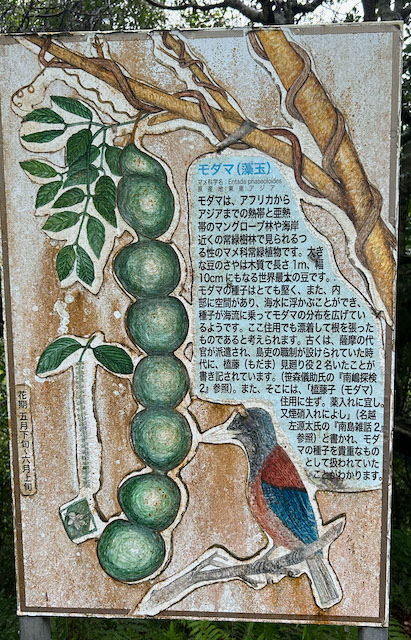 モダマ(藻玉)
マメ科学名:Entada phaseoloides
原産地:東南アジア
モダマは、アフリカから
アジアまでの熱帯と亜熱
帯のマングローブ林や海岸
近くの常緑樹林で見られるつ
る性のマメ科常緑植物です。大き
な豆のさやは木質で長さ1m、幅
10cmにもなる世界最大の豆です。
モダマの種子はとても堅く、また、内
部に空間があり、海水に浮かぶことができ、
種子が海流に乗ってモダマの分布を広げてい
るようです。ここ住用でも漂着して根を張った
ものであると考えられます。古くは、薩摩の代
官が派遣され、島吏の職制が設けられていた時
代に、榼藤(もだま)見廻り役2名いたことが
書き記されています。(笹森儀助氏の『南嶋探検
2』参照)。また、そこには、「榼藤子(モダマ)
住用に生ず。薬入れに宜し。
又煙硝入れによし」(名越
左源太氏の『南島雑話2』
参照)と書かれ、モダ
マの種子を貴重なもの
として扱われていた
ことがわかります。
花期 五月下旬〜六月上旬